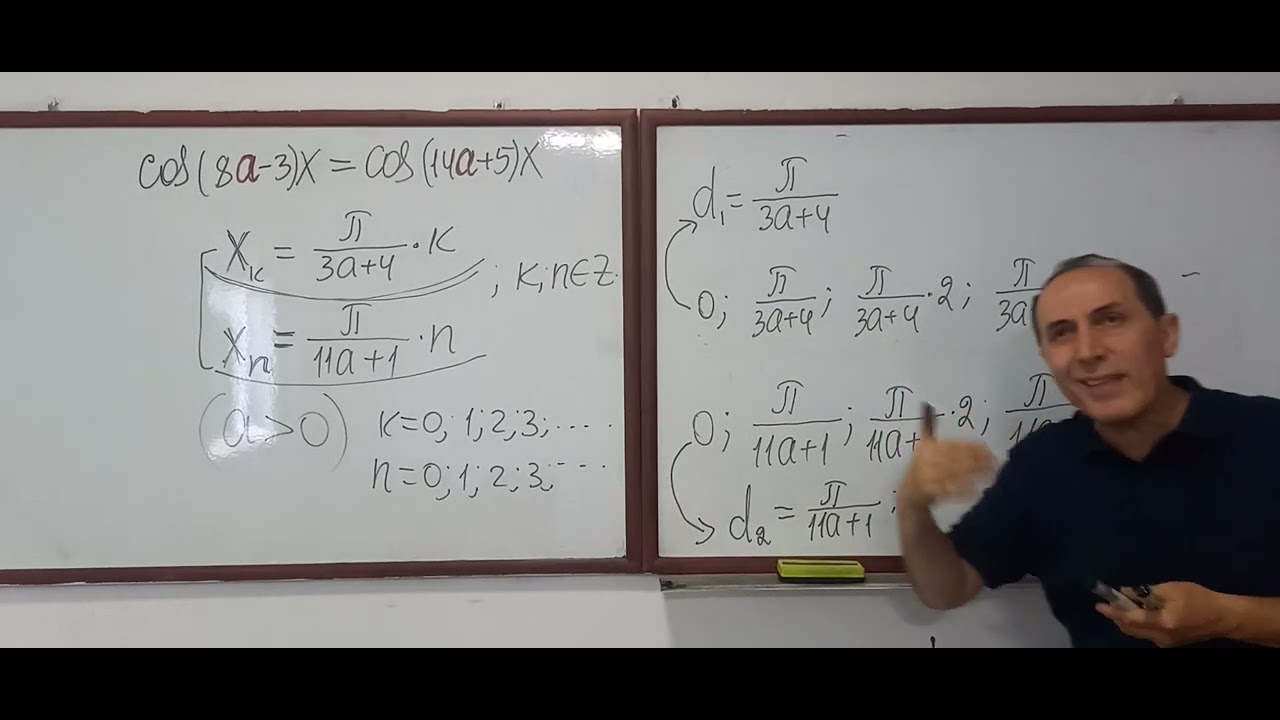 cos(8a-3)x = cos(14a+5)x
x_k = π/(3a+4) · k
x_n = π/(11a+1) · n
; k; n ∈ Z.
(a>0)
k=0; 1; 2; 3; ....
n=0; 1; 2; 3; ...
d_1 = π/(3a+4)
0; π/(3a+4); π/(3a+4) · 2; π/3a
0; π/(11a+1); π/11a+ · 2; π/11a
d_2 = π/(11a+1)